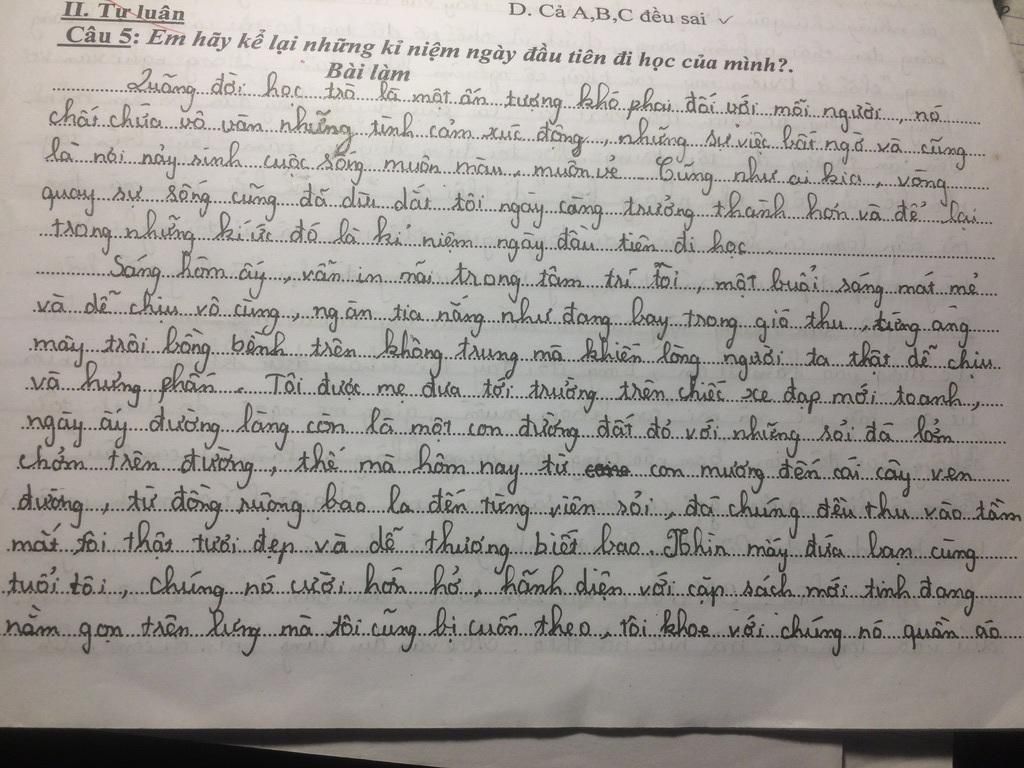 II. Tự luân
D. Cả A,B,C đều sai ✓
Câu 5: Em hãy kể lại những kỉ niệm ngày đầu tiên đi học của mình?.
Bài làm
Quãng đời học trò là một ấn tượng khó phai đối với mỗi người, nó
chất chứa vô vàn những tình cảm xúc động, những sự việc bất ngờ và cũng
là nơi nảy sinh cuộc sống muôn màu, muôn vẻ. Cũng như ai kia, vòng
quay sự sống cũng đã dìu dắt tôi ngày càng trưởng thành hơn và để lại
trong những kí ức đó là kỉ niệm ngày đầu tiên đi học.
Sáng hôm ấy, vẫn in mãi trong tâm trí tôi, một buổi sáng mát mẻ
và dễ chịu vô cùng, ngàn tia nắng như đang bay trong gió thu, từng áng
mây trôi bồng bềnh trên không trung mà khiến lòng người ta thật dễ chịu
và hưng phấn. Tôi được mẹ đưa tới trường trên chiếc xe đạp mới toanh,
ngày ấy đường làng còn là một con đường đất đỏ với những sỏi đá lởm
chởm trên đường, thế mà hôm nay từ con mương đến cái cây ven
đường, từ đồng ruộng bao la đến từng viên sỏi, đá chúng đều thu vào tầm
mắt tôi thật tươi đẹp và dễ thương biết bao. Nhìn mấy đứa bạn cùng
tuổi tôi, chúng nó cười hớn hở, hãnh diện với cặp sách mới tinh đang
nằm gọn trên lưng mà tôi cũng bị cuốn theo, tôi khoe với chúng nó quần áo